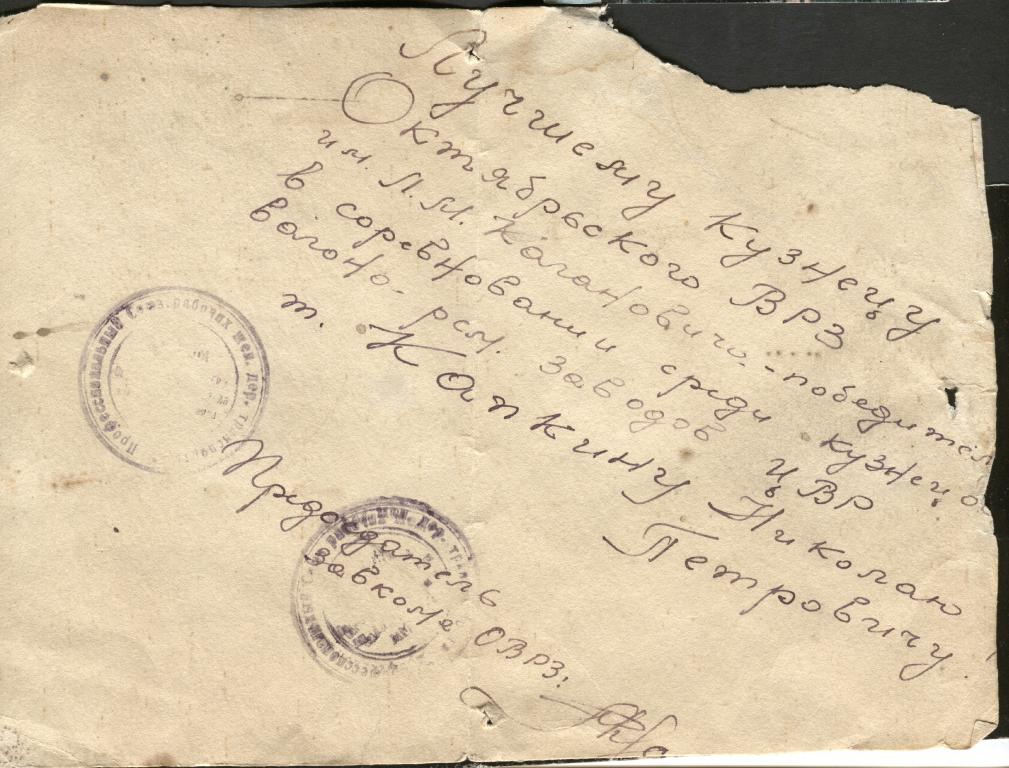 Лучшему кузнецу
Октябрьского ВРЗ
им. Л.М. Кагановича - победителю
в соревновании среди кузнецов
вагоно-рем. заводов ЦВР
т. Капкину Николаю
Петровичу!
Председатель
завкома ОВРЗ:
Профессиональный Союз рабочих жел. дор. транспорта
рабочих жел. дор.